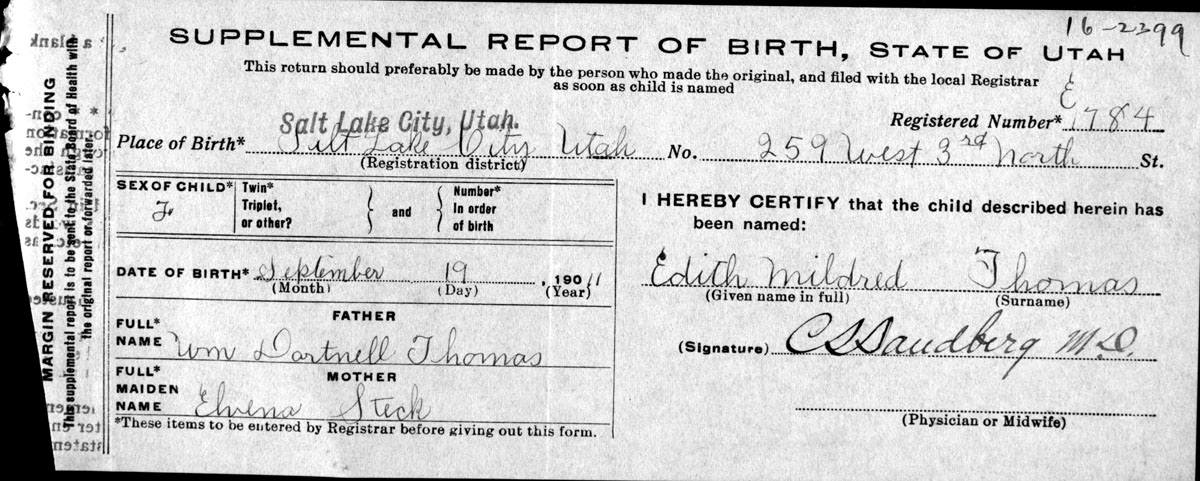 16-2399
SUPPLEMENTAL REPORT OF BIRTH, STATE OF UTAH
This return should preferably be made by the person who made the original, and filed with the local Registrar
as soon as child is named
E
Registered Number* 1784
Salt Lake City, Utah.
Place of Birth* Salt Lake City Utah No. 259 West 3rd North St.
(Registration district)
SEX OF CHILD* Twin* Number*
F. Triplet, and In order
or other? of birth
DATE OF BIRTH* September 19, 190 11
(Month) (Day) (Year)
FATHER
FULL*
NAME Wm Dartnell Thomas
FULL* MOTHER
MAIDEN
NAME Elvena Steck
*These items to be entered by Registrar before giving out this form.
I HEREBY CERTIFY that the child described herein has
been named:
Edith Mildred Thomas
(Given name in full) (Surname)
(Signature) C S Sandberg M.D.
(Physician or Midwife)
MARGIN RESERVED FOR BINDING
This supplemental report is to be sent to the State Board of Health with
the original report or forwarded later.